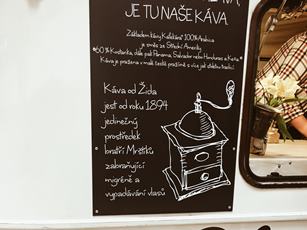 JE TU NAŠE KÁVA
Základem kávy Kafíkární 100% Arabica
je směs ze Střední Ameriky,
50% Kostarika, dále pak Panama, Salvador nebo Honduras a Keňa.
Káva je pražena v malé české pražírně s více jak stoletou tradicí.
Káva od Žida
jest od roku 1894
jedinečný
prostředek
bratří Mrštíků
zabraňující
migréně a
vypadávání vlasů